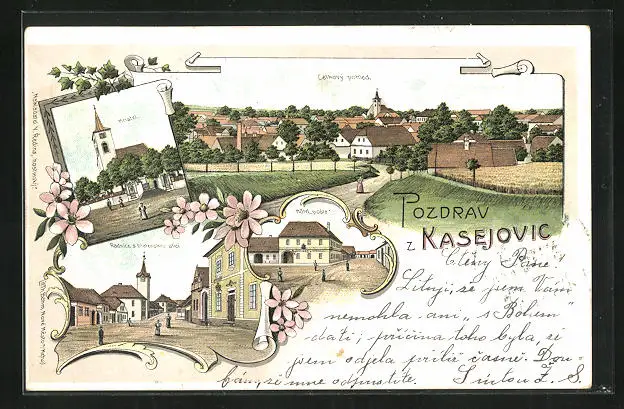 Celkový pohled.
Kostel.
POZDRAV
Z KASEJOVIC
Radnice s
Ctěný Pane!
Lituji, že jsem Vám
nemohla ani „s Bohem“
dáti; příčina toho byla, že
jsem odjela příliš časně. Dou-
fám, že mne odpustíte. S úctou Ž. S.